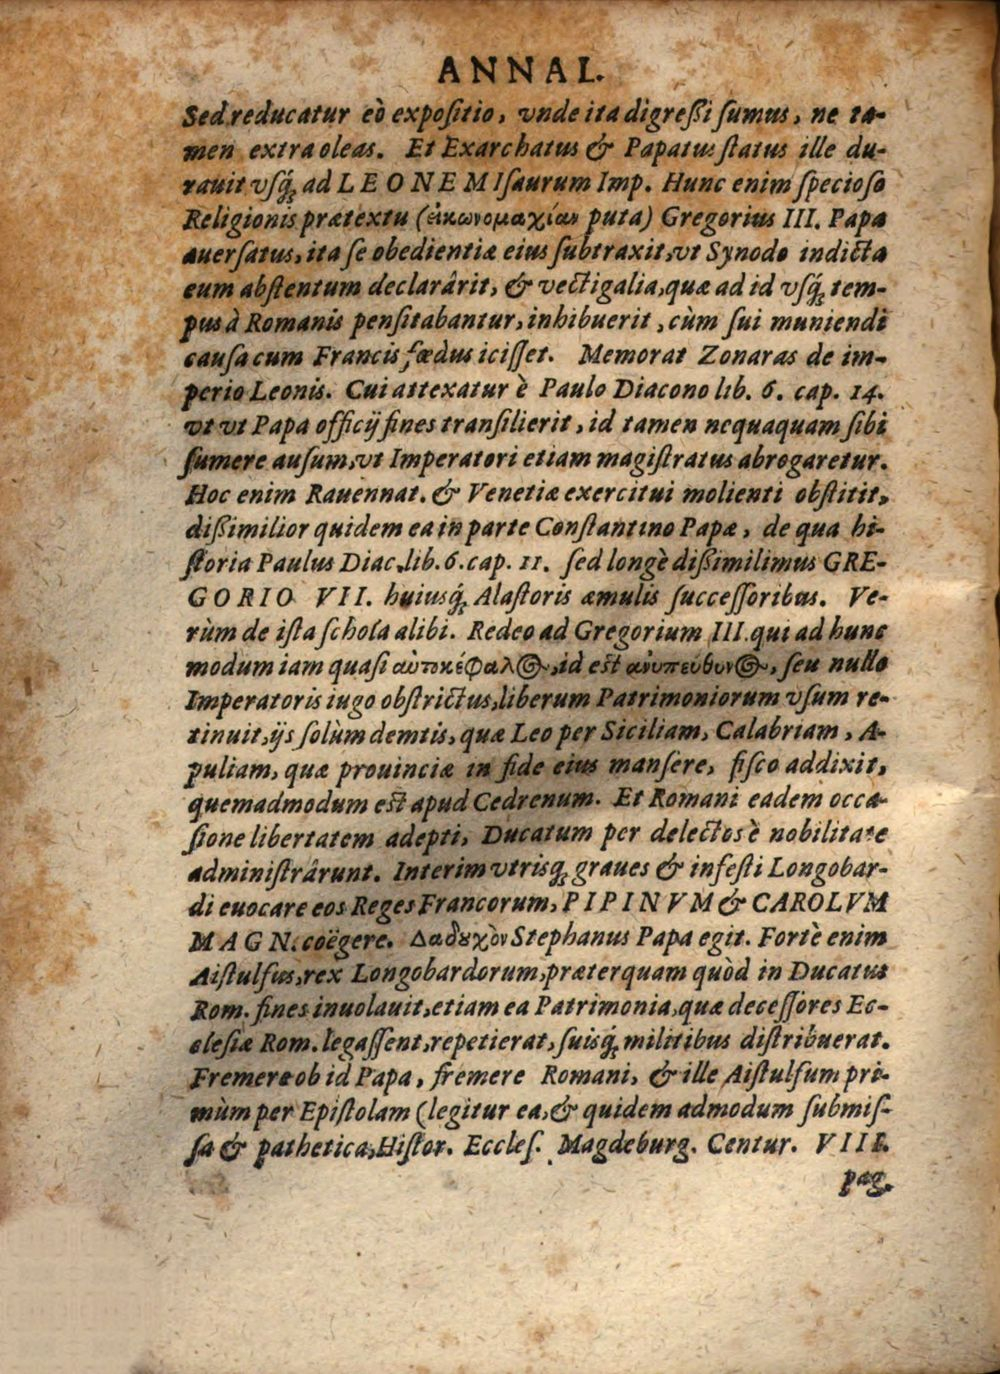 ANNAL.
Sed reducatur eò expoſitio, vnde ita digreßi ſumus, ne ta-
men extra oleas. Et Exarchatus & Papatus ſtatus ille du-
rauit vſq́; ad LEONEM Iſaurum Imp. Hunc enim ſpecioſo
Religionis prætextu (εἰκωνομαχίαν puta) Gregorius III. Papa
auerſatus, ita ſe obedientiæ eius ſubtraxit, vt Synodo indicta
eum abſtentum declarârit, & vectigalia, quæ ad id vſq́; tem-
pus à Romanis penſitabantur, inhibuerit, cùm ſui muniendi
cauſa cum Francis fœdus iciſſet. Memorat Zonaras de im-
perio Leonis. Cui attexatur è Paulo Diacono lib. 6. cap. 14.
vt vt Papa officij fines tranſilierit, id tamen nequaquam ſibi
ſumere auſum, vt Imperatori etiam magiſtratus abrogaretur.
Hoc enim Rauennat. & Venetiæ exercitui molienti obſtitit,
dißimilior quidem ea in parte Conſtantino Papæ, de qua hi-
ſtoria Paulus Diac. lib. 6. cap. 11. ſed longè dißimilimus GRE-
GORIO VII. huiusq́; Alaſtoris æmulis ſucceſſoribus. Ve-
rùm de iſta ſchola alibi. Redeo ad Gregorium III. qui ad hunc
modum iam quaſi αὐτοκέφαλος, id est ἀνυπεύθυνος, ſeu nullo
Imperatoris iugo obſtrictus, liberum Patrimoniorum vſum re-
tinuit, ijs ſolùm demtis, quæ Leo per Siciliam, Calabriam, A-
puliam, quæ prouinciæ in fide eius manſere, fiſco addixit,
quemadmodum est apud Cedrenum. Et Romani eadem occa-
ſione libertatem adepti, Ducatum per delectos è nobilitate
adminiſtrârunt. Interim vtrisq́; graues & infeſti Longobar-
di euocare eos Reges Francorum, PIPINVM & CAROLVM
MAGN. coëgere. Δαδουχὸν Stephanus Papa egit. Fortè enim
Aiſtulfus, rex Longobardorum, præterquam quòd in Ducatus
Rom. fines inuolauit, etiam ea Patrimonia, quæ deceſſores Ec-
cleſiæ Rom. legaſſent, repetierat, ſuisq́; militibus diſtribuerat.
Fremere ob id Papa, fremere Romani, & ille Aiſtulfum pri-
mùm per Epiſtolam (legitur ea, & quidem admodum ſubmiſ-
ſa & pathetica, Hiſtor. Eccleſ. Magdeburg. Centur. VIII.
pag.